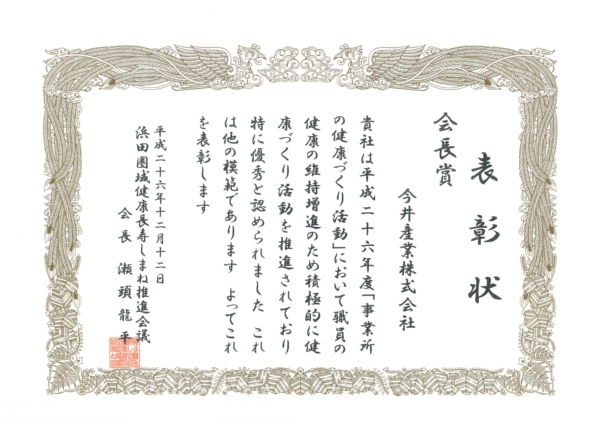 表彰状
会長賞
今井産業株式会社
貴社は平成二十六年度「事業所
の健康づくり活動」において職員の
健康の維持増進のため積極的に健
康づくり活動を推進されており
特に優秀と認められました これ
は他の模範であります よってこれ
を表彰します
平成二十六年十二月十二日
浜田圏域健康長寿しまね推進会議
会長 瀬頭龍平